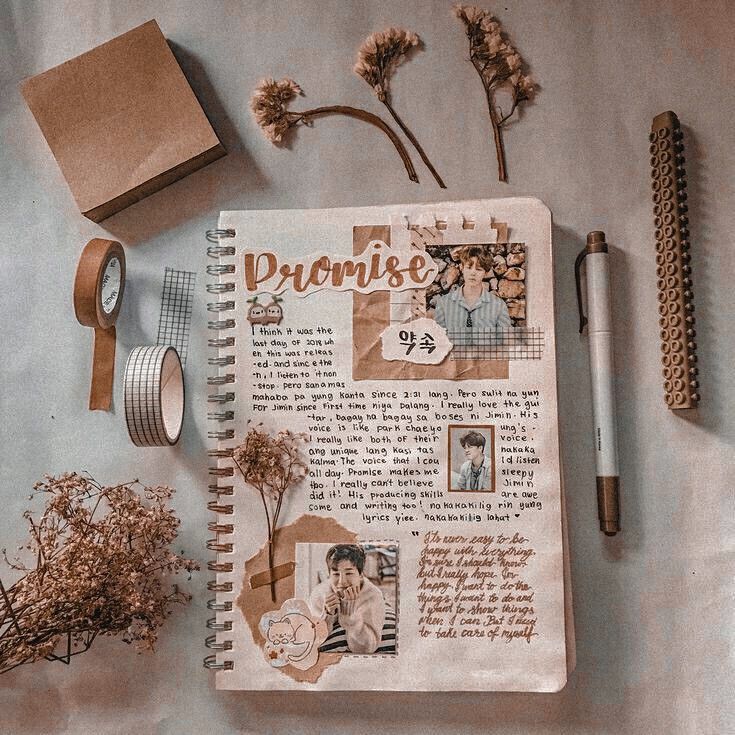 Promise
약속
I think it was the
last day of 2018 wh
en this was releas
-ed. and since the
n, I listen to it non
-stop. Pero sana mas
mahaba pa yung kanta since 2:31 lang. Pero sulit na yun
For Jimin since First time niya palang. I really love the gui
-tar, bagay na bagay sa boses ni Jimin. His
voice is like park chaeyo ung's.
I really like both of their voice,
ang unique lang kasi, tas nakaka
kalma. The voice that I cou ld listen
all day. Promise makes me sleepy
tbo. I really can't believe Jimin
did it! His producing skills are awe
some and writing too! nakakakilig rin yung
lyrics yiee. nakakakilig lahat ♥
"It's never easy to be
happy with everything.
I'm sure I should know
but I really hope I'm
happy. I want to do the
things I want to do and
I want to show things
when I can. But I need
to take care of myself